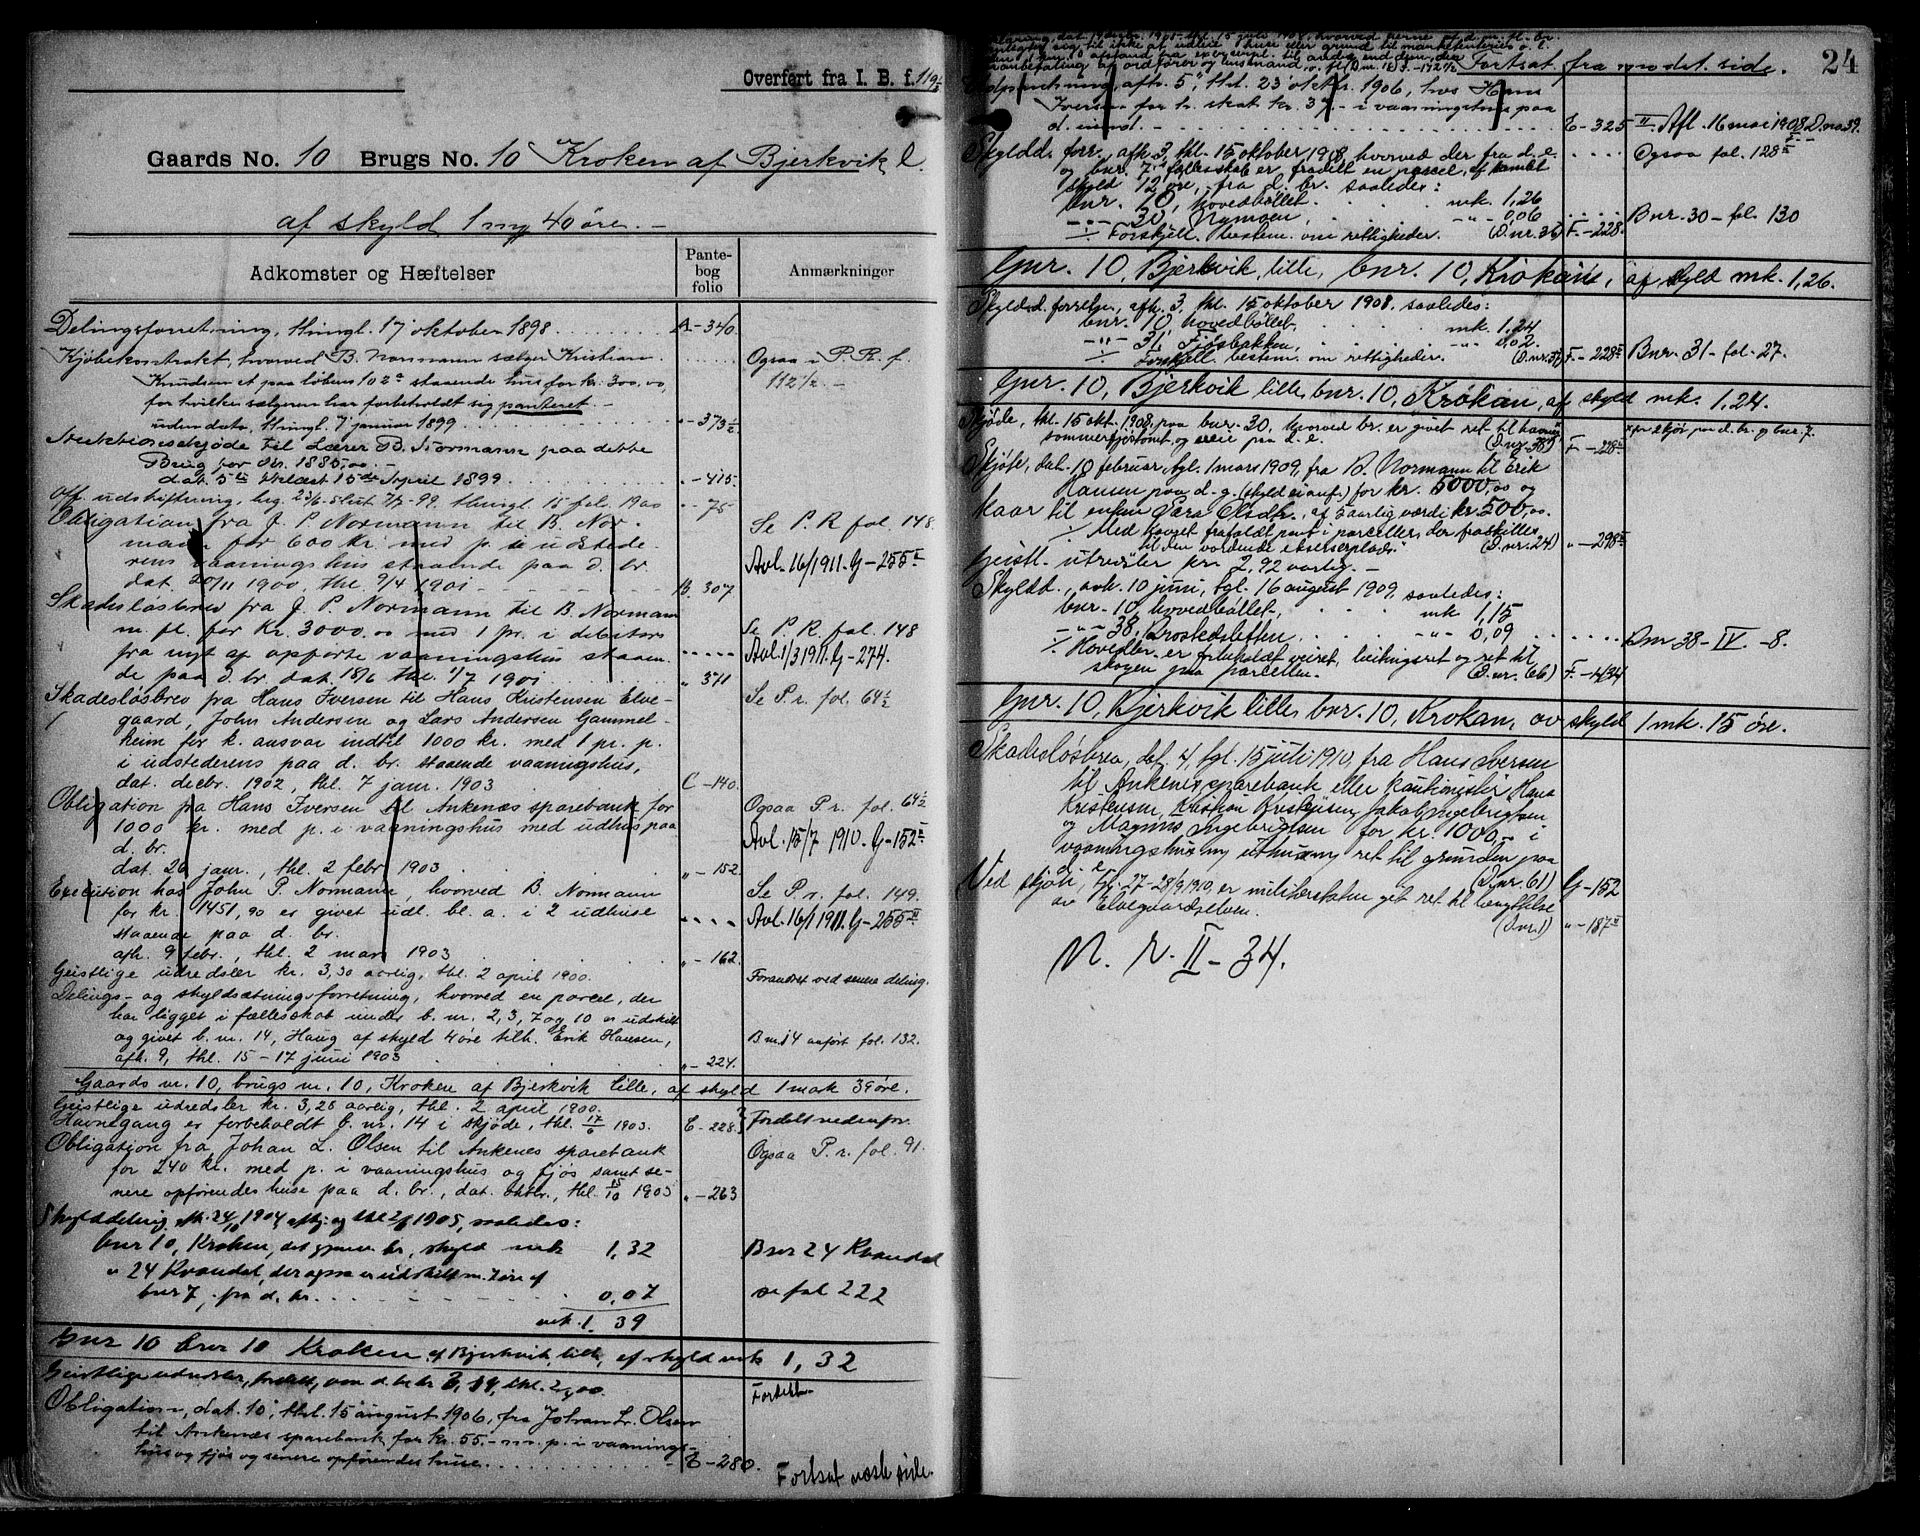 Overført fra I. B. f. 119 1/2
Gaards No. 10 Brugs No. 10 Kroken af Bjerkvik l.
af skyld 1 my 40 øre. –
Adkomster og Hæftelser
Pante-
bog
folio
Anmærkninger
Delingsforretning, thingl. 17 oktober 1898 A – 340
Kjøbekontrakt, hvorved B. Normann sælger Kristian Ogsaa i P. R. f.
Knudsen et paa løbens 102a staaende hus for kr. 300,00, 112 1/2. –
for hvilke sælgeren har forbeholdt sig panteret. –
uden dato, thingl. 7 januar 1899 " – 373 1/2
Auktionsskjøde til Lærer B. Normann paa dette
Brug for Kr. 1885,00. –
dat. 5te Oplæst 15de April 1899 – 415
Af. udskiftning, beg. 23/6 - slut 7/7 - 99. thingl. 15 feb. 1900 " – 75
Obligation fra J. P. Normann til B. Nor- Se P. R fol. 148.
mann for 600 kr. med p. i udstede-
rens vaaningshus staaende paa d. br. Avl. 16/1 1911. G – 255 II
dat. 20/11 1900 thl. 9/4 1901 B. 307
Skadesløsbrev fra J. P. Normann til B. Normann
m. fl. for Kr. 3000.00 med 1 pr. i debitors Se P. R. fol. 148
fra nyt af opførte vaaningshus staaen- Avl. 1/3 1911. G – 274.
de paa d. br. dat. 18/6 thl. 1/7 1901 " 371
Skadesløsbrev fra Hans Iversen til Hans Kristensen Elve- Se P. r. fol. 64 1/2
gaard, John Andersen og Lars Andersen Gammel-
heim for k. ansvar indtil 1000 kr. med 1 pr. p.
i udstederens paa d. br. staaende vaaningshus,
dat. decbr. 1902, thl. 7 janr. 1903 C – 140.
Obligation fra Hans Iversen til Ankenæs sparebank for Ogsaa P. r. fol. 64 1/2
1000 kr. med p. i vaaningshus med udhus paa Avl. 15/7 1910. G – 152 II
d. br.
dat. 26 janr., thl. 2 febr. 1903 " – 152.
Execution hos John P. Normann, hvorved B. Normann Se P. r. fol. 149.
for kr. 1451,90 er givet udl. bl. a. i 2 udhuse Avl. 16/1 1911. G – 255 II
staaende paa d. br.
afh. 9 febr., thl. 2 mars 1903 " – 162.
Geistlige udredsler kr. 3,30 aarlig, thl. 2 april 1900. Forandret ved senere deling.
Delings- og skyldsætningsforretning, hvorved en parcel, der
har ligget i fællesskab under b. nr. 2, 3, 7 og 10 er udskilt
og givet b. nr. 14, Haug af skyld 4 øre tilh. Erik Hansen, B nr 14 anført fol. 132.
afh. 9, thl. 15 – 17 juni 1903 " – 224.
Gaards nr. 10, brugs nr. 10, Kroken af Bjerkvik lille, af skyld 1 mark 39 øre.
Geistlige udredsler kr. 3,28 aarlig, thl. 2 april 1900.
Havnegang er forbeholdt b. nr. 14 i skjøde, thl. 17/6 1903. C – 228. Fordelt nedenfor.
Obligation fra Johan L. Olsen til Ankenes sparebank Ogsaa P. r. fol. 91.
for 240 kr. med p. i vaaningshus og fjøs samt se-
nere opførendes huse paa d. br., dat. oktbr., thl. 15/10 1903 " – 263
Skylddeling afh. 24/10 1904 og thl. 2/1 1905, saaledes:
bnr 10, Kroken, det gjenv. br., skyld mrk 1,32 Bnr 24 Kvandal
" 24 Kvandal, der ogsaa er udskilt m. 2 øre af
bnr 7, fra d. br. 0,07 se fol 222
mrk. 1. 39
Gnr 10 bnr 10 Kroken af Bjerkvik, lille, af skyld mrk 1,32
Geistlige udredsler, fordelt, von d. br. kr 3,19, thl. 2/4 00. Fortsat
Obligation, dat. 10, thl. 15 august 1906, fra Johan L. Olsen
til Ankenæs sparebank for kr. 55. – m. p. i vaanings-
hus og fjøs og senere opførendes huse. E – 280.
Fortsat næste side.
24
Fortsat fra modst. side.
Udpantning, afh. 5, thl. 23 oktbr. 1906, hos Hans
Iversen for h. skat kr. 37. – i vaaningshus paa
d. eiend. E – 325 II Afl. 16 mai 1908 D.nr. 39.
Skyldd. forr., afh. 3, thl. 15 oktober 1908, hvorved der fra d. e. Ogsaa fol. 128 II
og bnr. 7's fællesskab er fradelt en parcel, af samlet
skyld 12 øre, fra d. br. saaledes:
bnr. 10, hovedbøllet mk. 1,26
– " – 30, Nymoen, – " – 0,06 Bnr. 30 – fol. 130
Forskjell. bestem. om rettigheder. (D.nr. 36) F. – 228.
Gnr. 10, Bjerkvik, lille, bnr. 10, Krokan, af skyld mk. 1,26.
Skyldd. forretn., afh. 3, thl. 15 oktober 1908, saaledes:
bnr. 10, hovedbøllet, mk. 1,24
– " – 31, Fjøsbakken, – " – 0,02.
Forskjell. bestem. om rettigheder. (D.nr. 37) F. – 228 II Bnr. 31 – fol. 27.
Gnr. 10, Bjerkvik lille, bnr. 10, Krokan, af skyld mk. 1,24.
Skjøde, thl. 15 okt. 1908, paa bnr. 30, hvorved br. er givet ret til havn, for 2 kjør paa d. br. og bnr. 7.
sommerfjøstomt, og veie paa d. e. (D.nr. 38) F – 228 II
Skjøte, dat. 10 februar, tgl. 1 mars 1909, fra B. Normann til Erik
Hansen paa d. g. (skyld ei anf.) for kr. 5000,00 og
kaar til enken Sara Olsdtr., af 5 aarlig værdi kr. 500,00.
Med havret frafaldt part i parceller, der fraskilles
til den vordende ekserserplads. (D.nr. 24) " – 298 II
Geistl. utredsler kr. 2,92 aarlig. –
Skyldd., avh. 10 juni, tgl. 16 august 1909, saaledes:
bnr. 10, hovedbøllet, mk 1,15
– " – 38, Broskedsletten – " – 0,09 Bnr 38 – IV – 8.
Hovedbr. er forbeholdt veiret, beitningsret og ret til
skogen paa parcellen. (D.nr. 66) F. – 434
Gnr. 10, Bjerkvik lille, bnr. 10, Krokan, av skyld 1 mk. 15 øre.
Skadesløsbrev, dat. 4, tgl. 15 juli 1910, fra Hans Iversen
til Ankenes sparebank eller kautionister Hans
Kristensen, Kristian Kristensen, Jakob Ingebrigtsen
og Magnus Ingebrigtsen for kr. 1000,00 i
vaaningshus m/ uthus m/ ret til grunden paa
(D.nr. 61) G – 152
Ved skjøte, tgl. 27 – 28/9 1910, er militærstaten git ret til benyttelse
av Elvegaardselven. (D.nr. 1) " – 187 II
N. R. II – 34.